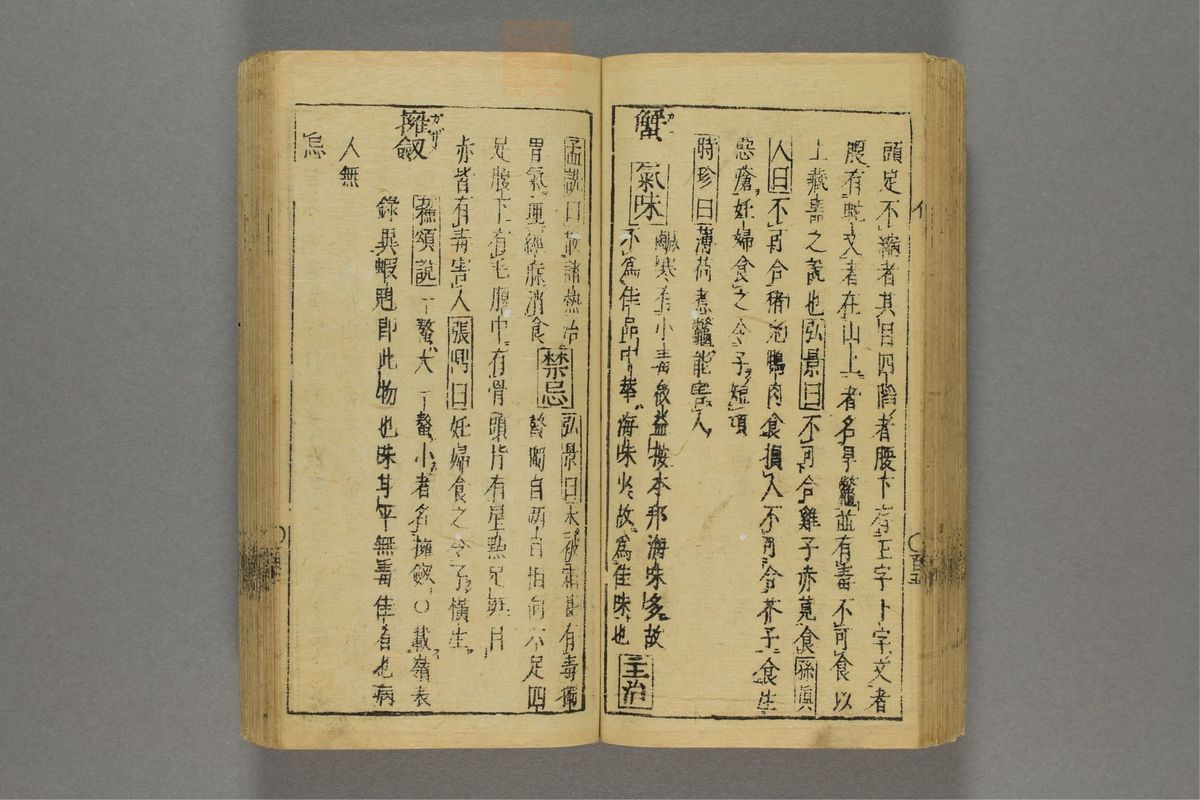 頭足不縮者其目四陷者腰下有王字卜字文者
腹有蛇文者在山上者名旱鼈並有毒不可食以
上藏器之說也弘景曰不可合雞子赤莧食孫眞
人曰不可合猪兎鴨肉食損人不可合芥子食生
惡瘡妊婦食之令子短項
時珍曰薄荷煮鼈能害人
蟹カニ
氣味鹹寒有小毒後益按本邦海味多故
不爲佳品中華海味少故爲佳味也主治
孟詵曰散諸熱治
胃氣理經脉消食禁忌弘景曰未被霜甚有毒
獨螯獨目兩目相向六足四
足腹下有毛腹中有骨頭背有星點足斑目
赤皆有毒害人張鼎曰妊婦食之令子橫生
擁劒ガザ
蘇頌說一螯大一螯小者名擁劒○載嶺表
錄與蝦䖳卽此物也味甘平無毒佳肴也病
人無
忌